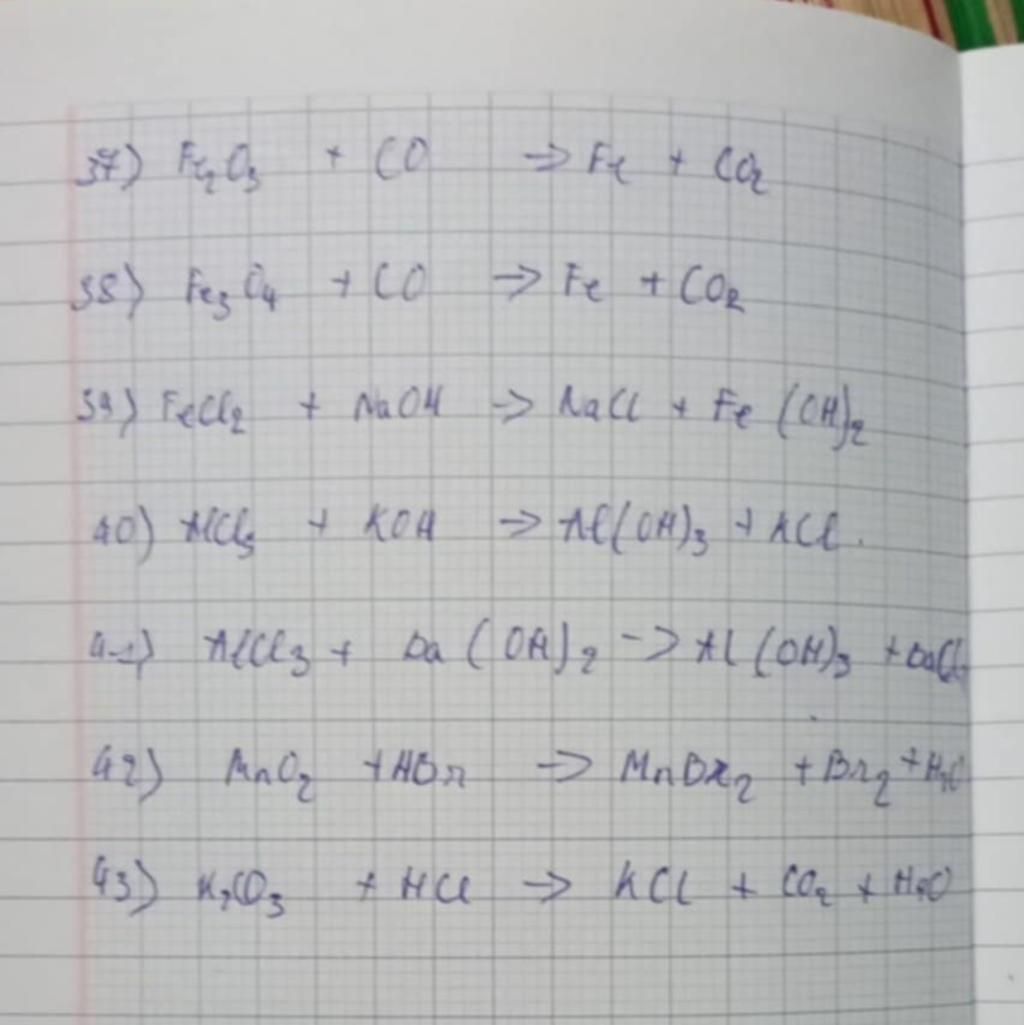 37) Fe₂O₃ + CO → Fe + CO₂
38) Fe₃O₄ + CO → Fe + CO₂
39) FeCl₂ + NaOH → NaCl + Fe(OH)₂
40) AlCl₃ + KOH → Al(OH)₃ + KCl.
41) AlCl₃ + Ba(OH)₂ → Al(OH)₃ + BaCl₂
42) MnO₂ + HBr → MnBr₂ + Br₂ + H₂O
43) K₂CO₃ + HCl → KCl + CO₂ + H₂O